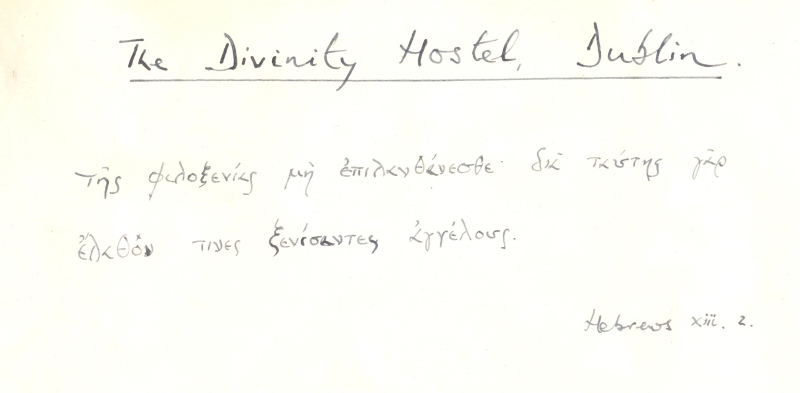 The Divinity Hostel, Dublin.
τῆς φιλοξενίας μὴ ἐπιλανθάνεσθε· διὰ ταύτης γὰρ
ἔλαθόν τινες ξενίσαντες ἀγγέλους.
Hebrews xiii. 2.